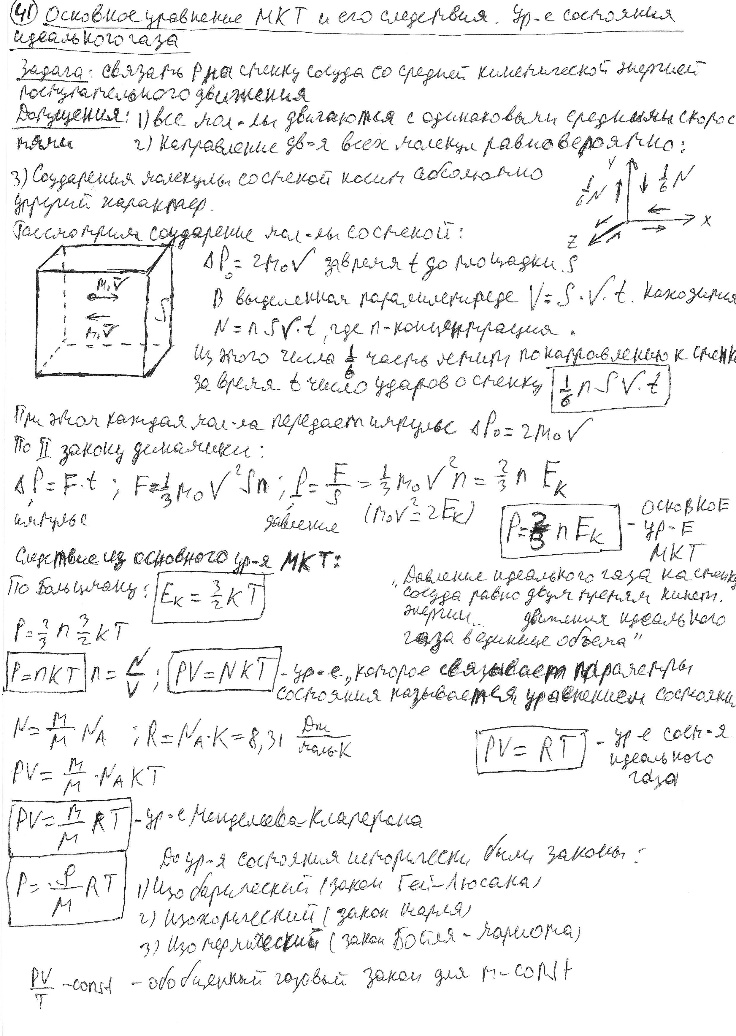 41 Основное уравнение МКТ и его следствия. Ур-е состояния
идеального газа
Задача: связать P на стенку сосуда со средней кинетической энергией
поступательного движения
Допущения: 1) все мол-лы двигаются с одинаковыми средними скорос
тями 2) Направление дв-я всех молекул равновероятно:
3) Соударения молекулы со стенкой носит абсолютно
упругий характер.
Y
1/6 N 1/6 N
X
Z
Рассмотрим соударение мол-лы со стенкой:
m₀V̄
m₀V̄
S
ΔP₀ = 2m₀V за время t до площадки S
В выделенном параллелепипеде V = S·V·t. находится
N = nSV·t, где n-концентрация.
Из этого числа 1/6 часть летит по направлению к стенк
за время t число ударов о стенку 1/6 nSV·t
При этом каждая мол-ла передает импульс ΔP₀ = 2m₀V
По II закону динамики:
ΔP = F·t ; F = 1/3 m₀V²Sn ; P = F/S = 1/3 m₀V²n = 2/3 n Eк
импульс давление (m₀V² = 2Eк)
P = 2/3 nEк - ОСНОВНОЕ
УР-Е
МКТ
Следствие из основного ур-я МКТ:
По Больцману: Eк = 3/2 kT
"Давление идеального газа на стенку
сосуда равно двум третям кинет.
энергии.. движения идеального
газа в единице объема"
P = 2/3 n 3/2 kT
P = nkT n = N/V ; PV = NkT - ур-е, которое связывает параметры
состояния называется уравнением состояни
N = m/M Nᴀ ; R = Nᴀ·K = 8,31 Дж/моль·К
PV = RT - ур-е сост-я
идеального
газа
PV = m/M · NᴀkT
PV = m/M RT - ур-е Менделеева-Клаперона
До ур-я состояния исторически были законы:
P = ρ/M RT
1) Изобарический (закон Гей-Люсака)
2) Изохорический (закон Шарля)
3) Изотермический (закон Бойля-Мариота)
PV/T - const - обобщенный газовый закон для m-const